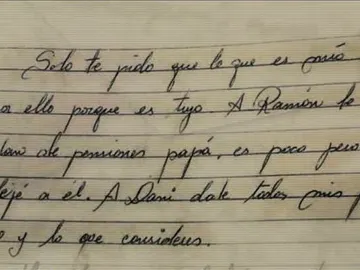 Solo te pido que lo que es mío
ello porque es tuyo A Ramón le
de pensiones papá, es poco pero
dejé a él. A Dani dale todos mis
y lo que consideres.